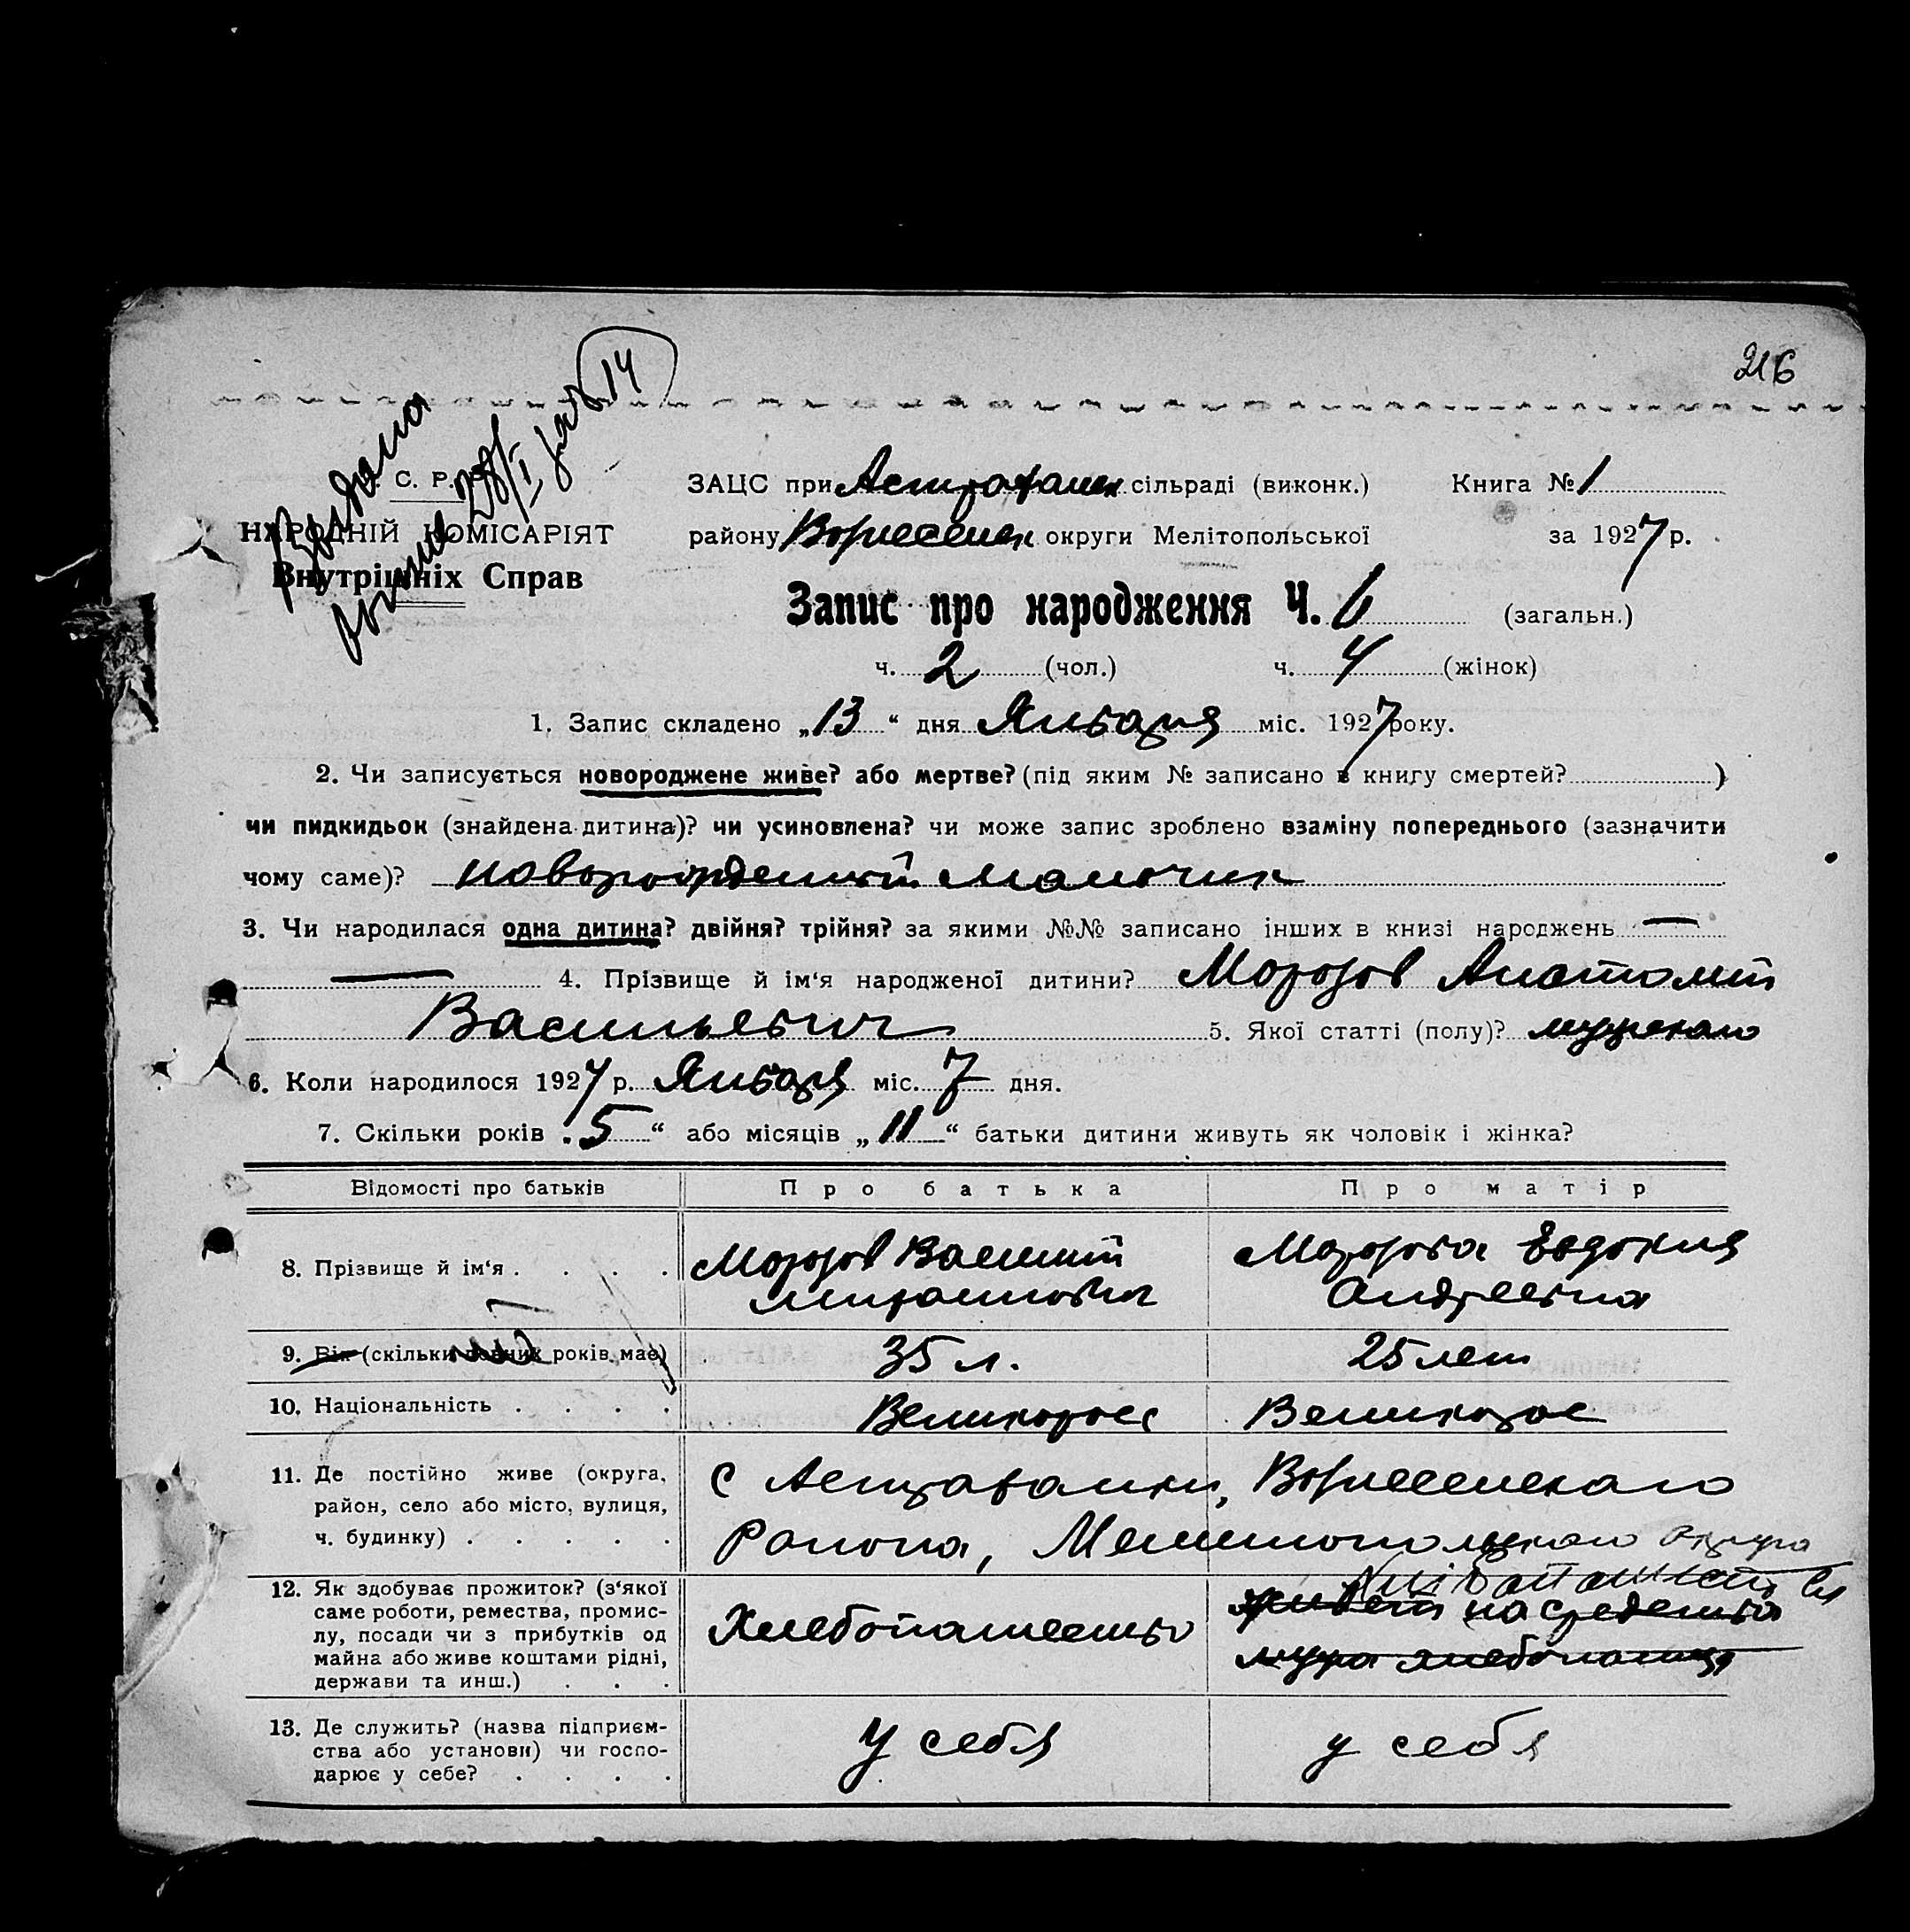 216
14
Выдана
С. Р. Р.
НАРОДНІЙ КОМІСАРІЯТ
Внутрішніх Справ
ЗАЦС при Астрахан сільраді (виконк.) Книга № 1
району Вознесенск округи Мелітопольської за 1927 р.
Запис про народження Ч. 6 (загальн.)
ч. 2 (чол.) ч. 4 (жінок)
1. Запис складено „13“ дня Января міс. 1927 року.
2. Чи записується новороджене живе? або мертве? (під яким № записано в книгу смертей? )
чи пидкидьок (знайдена дитина)? чи усиновлена? чи може запис зроблено взаміну попереднього (зазначити
чому саме)? новорожденный мальчик
3. Чи народилася одна дитина? двійня? трійня? за якими №№ записано інших в книзі народжень —
— 4. Прізвище й ім‘я народженої дитини? Морозов Анатолий
Васильевич 5. Якої статті (полу)? мужскаго
6. Коли народилося 1927 р. Января міс. 7 дня.
7. Скільки років „5“ або місяців „11“ батьки дитини живуть як чоловік і жінка?
Відомості про батьків Про батька Про матір
8. Прізвище й ім‘я . . . . Морозов Василий Морозова Евдокия
Андреевна
9. Вік (скільки повних років має) 35 л. 25 лет
10. Національність . . . . Великоросс Великорос
11. Де постійно живе (округа, с Астраханки, Вознесенскаго
район, село або місто, вулиця,
ч. будинку) . . . . . Района, Мелитопольскаго округа
12. Як здобуває прожиток? (з‘якої
саме роботи, ремества, промис- живет на средства
лу, посади чи з прибутків од Хлебопашество
майна або живе коштами рідні, мужа хлебопашца
держави та инш.) . . .
13. Де служить? (назва підприєм-
ства або установи) чи госпо- у себя у себя
дарює у себе? . . . .